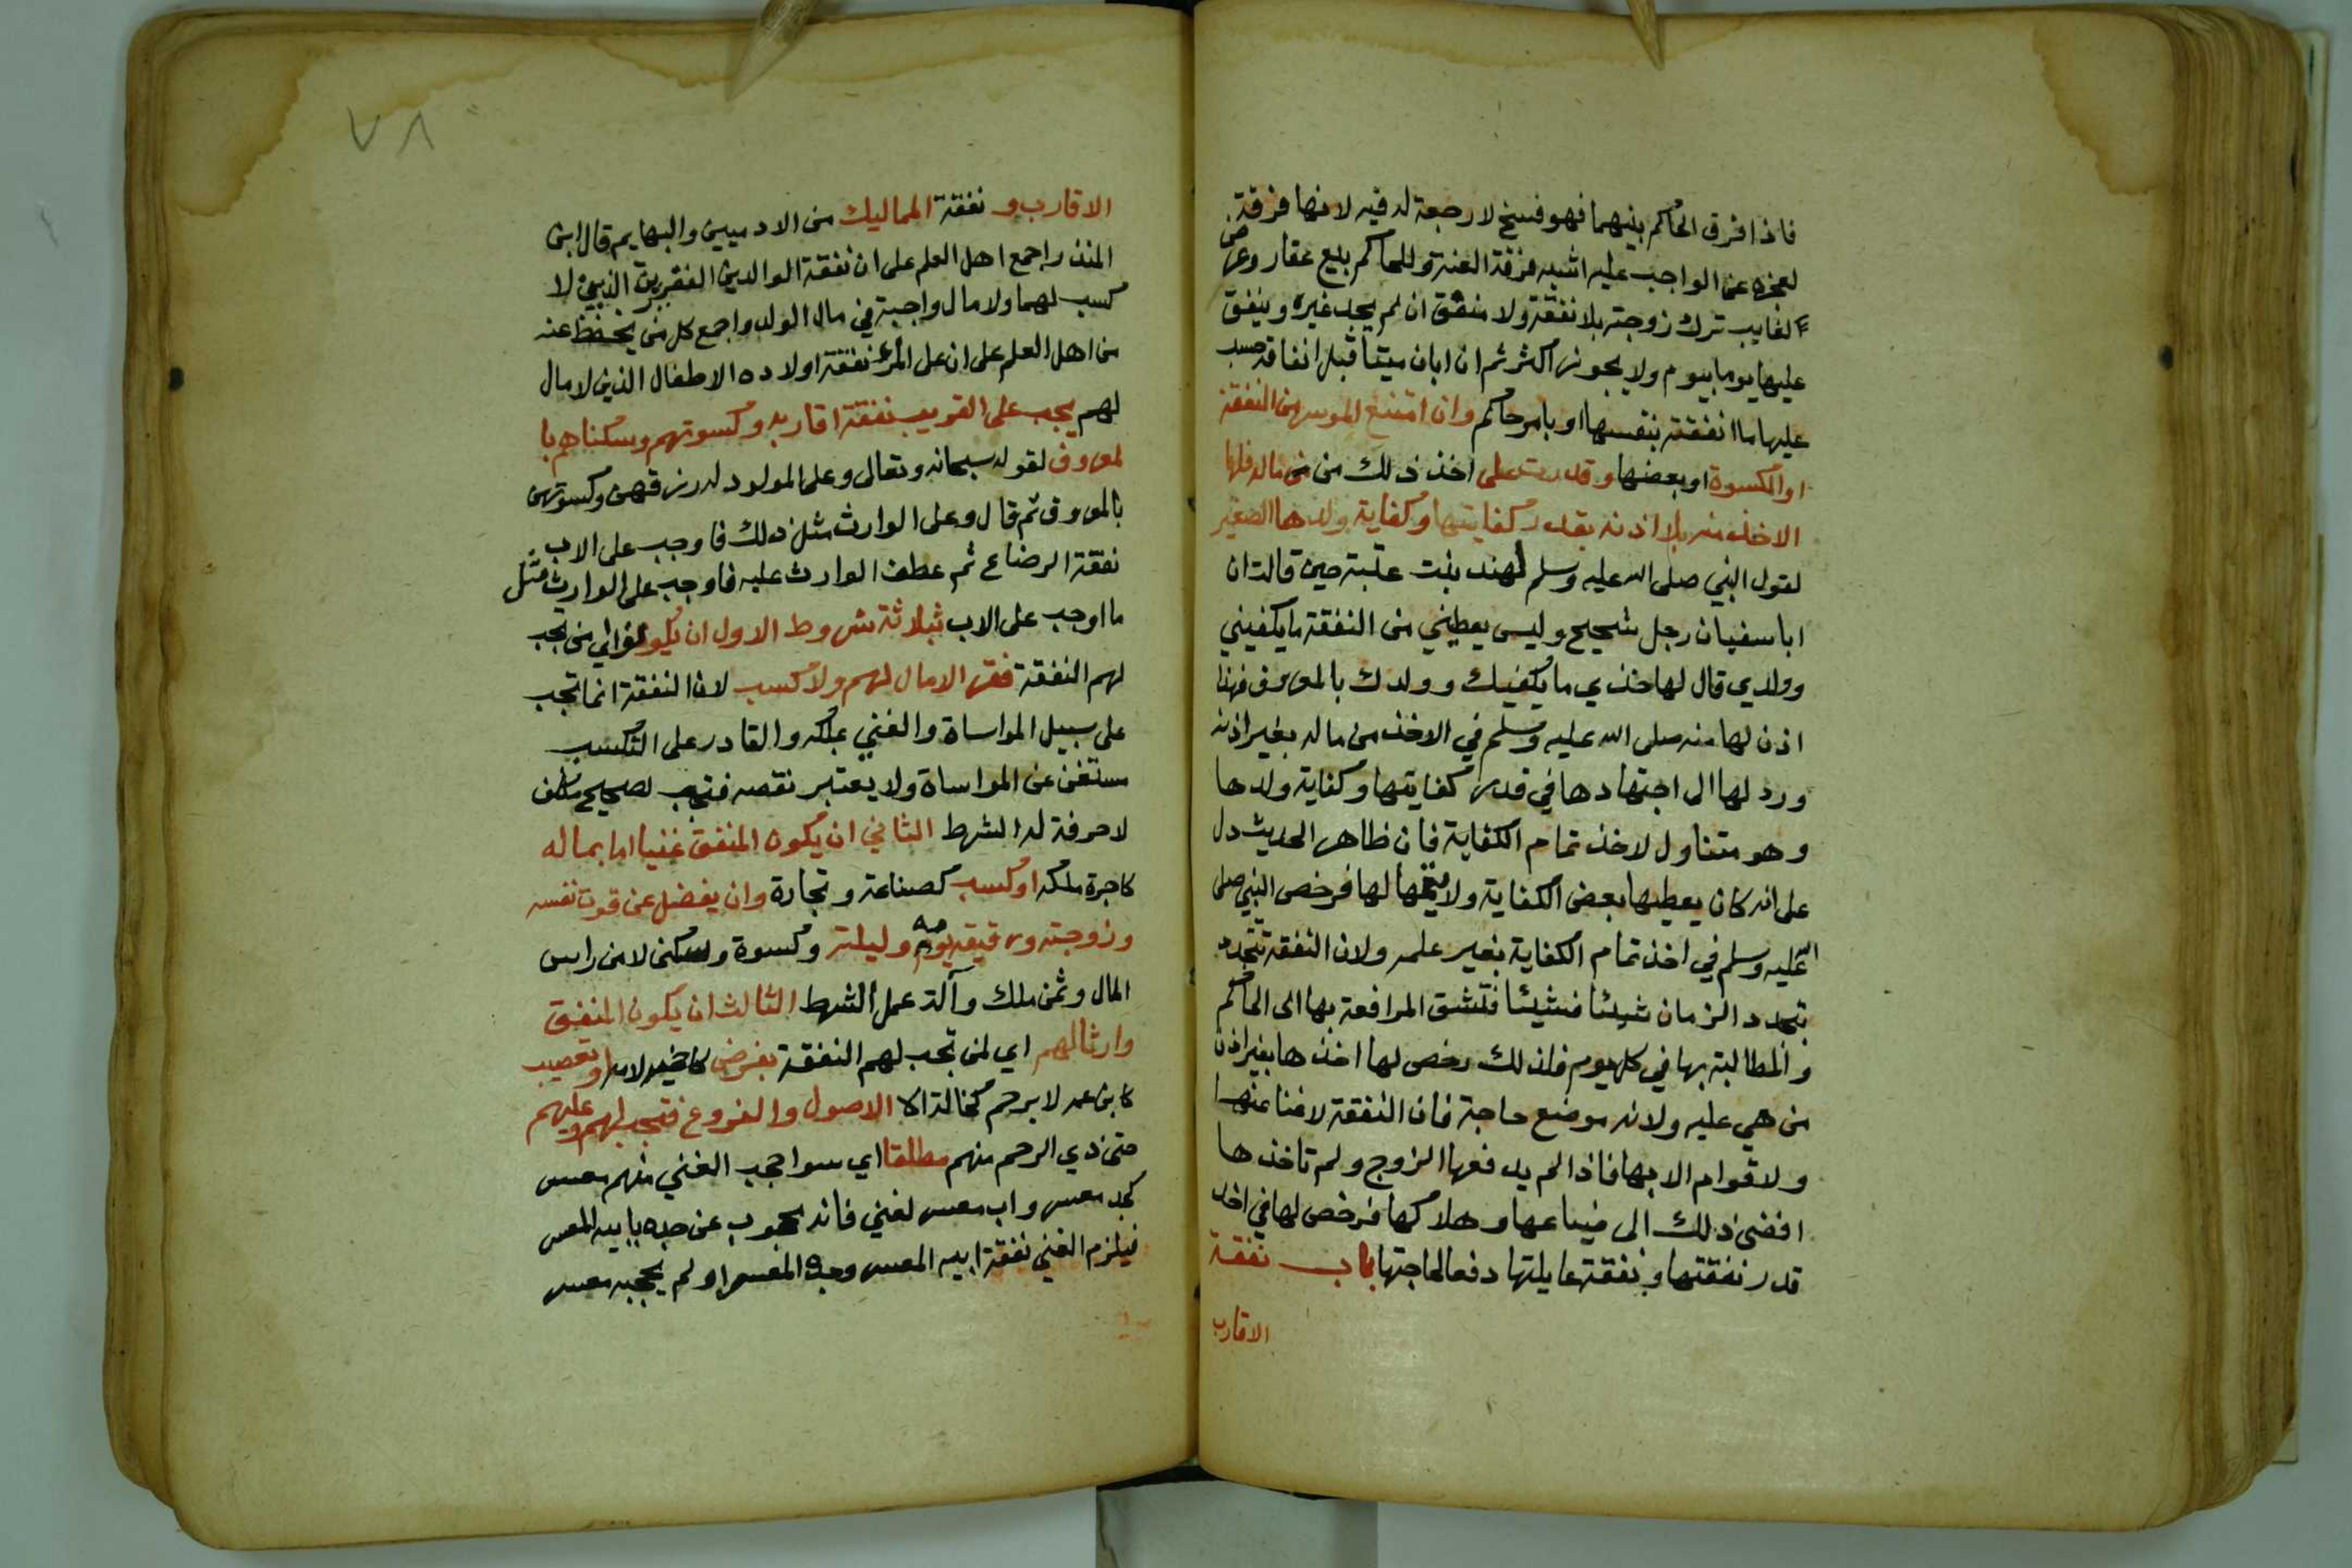 فاذا فرق الحاكم بينهما فهو فسخ لا رجعة له فيه لانها فرقة
لعجزه عن الواجب عليه اشبه فرقة العنة وللحاكم بيع عقار وعرض
لغايب ترك زوجته بلا نفقة ولا منفق ان لم يجد غيره وينفق
عليها يوما بيوم ولا يجوز اكثر ثم ان بان ميتا قبل انفاقه حسب
عليها ما انفقته بنفسها او بامر حاكم وان امتنع الموسر من النفقة
او الكسوة او بعضها وقدرت على اخذ ذلك من من ماله فلها
الاخذ منه بلا اذنه بقدر كفايتها وكفاية ولدها الصغير
لقول النبي صلى الله عليه وسلم لهند بنت عتبة حين قالت ان
ابا سفيان رجل شحيح وليس يعطيني من النفقة ما يكفيني
وولدي قال لها خذي ما يكفيك وولدك بالمعروف فهذا
اذن لها منه صلى الله عليه وسلم في الاخذ من ماله بغير اذنه
ورد لها الى اجتهادها في قدر كفايتها وكفاية ولدها
وهو متناول لاخذ تمام الكفاية فان ظاهر الحديث دل
على انه كان يعطيها بعض الكفاية ولا يتمها لها فرخص النبي صلى
الله عليه وسلم في اخذ تمام الكفاية بغير علمه ولان النفقة تتجدد
بتجدد الزمان شيئا فشيئا فتشق المرافعة بها الى الحاكم
والمطالبة بها في كل يوم فلذلك رخص لها اخذها بغير اذن
من هي عليه ولانه موضع حاجة فان النفقة لا غنا عنها
ولا قوام الا بها فاذا لم يدفعها الزوج ولم تاخذها
افضى ذلك الى ضياعها وهلاكها فرخص لها في اخذ
قدر نفقتها ونفقة عايلتها دفعا لحاجتها باب نفقة
الاقارب
٧٨
الاقارب و نفقة المماليك من الادميين والبهايم قال ابن
المنذر اجمع اهل العلم على ان نفقة الوالدين الفقيرين الذين لا
كسب لهما ولا مال واجبة في مال الولد واجمع كل من يحفظ عنه
من اهل العلم على ان على المرء نفقة اولاده الاطفال الذين لا مال
لهم يجب على القريب نفقة اقاربه وكسوتهم وسكناهم با
لمعروف لقوله سبحانه وتعالى وعلى المولود له رزقهن وكسوتهن
بالمعروف ثم قال وعلى الوارث مثل ذلك فاوجب على الاب
نفقة الرضاع ثم عطف الوارث عليه فاوجب على الوارث مثل
ما اوجب على الاب بثلاثة شروط الاول ان يكونوا اي من تجب
لهم النفقة فقرا لا مال لهم ولا كسب لان النفقة انما تجب
على سبيل المواساة والغني بملكه والقادر على التكسب
مستغن عن المواساة ولا يعتبر نقصه فتجب لصحيح مكلف
لا حرفة له الشرط الثاني ان يكون المنفق غنيا اما بماله
كاجرة ملكه او كسب كصناعة وتجارة وان يفضل عن قوت نفسه
وزوجته ورقيقه يومه وليلته وكسوة وسكنى لا من راس
المال وثمن ملك وآلة عمل الشرط الثالث ان يكون المنفق
وارثا لهم اي لمن تجب لهم النفقة بفرض كاخيه لامه او تعصيب
كابن عمه لا برحم كخالة الا الاصول والفروع فتجب لهم وعليهم
حتى ذي الرحم منهم مطلقا اي سوا حجب الغني منهم معسر
كجد معسر واب معسر لغني فانه محجوب عن جده بابيه المعسر
فيلزم الغني نفقة ابيه المعسر وجده المعسر او لم يحجبه معسر